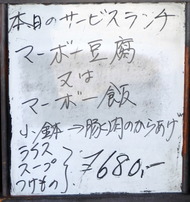 本日のサービスランチ
マーボー豆腐
又は
マーボー飯
小鉢→豚肉のからあげ
ライス
スープ
つけもの
¥680,-